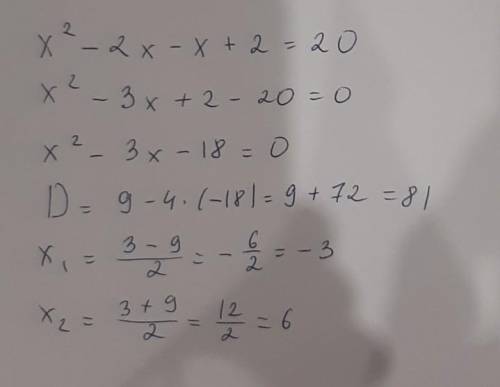 x² - 2x - x + 2 = 20
x² - 3x + 2 - 20 = 0
x² - 3x - 18 = 0
D = 9 - 4 · (-18) = 9 + 72 = 81
x₁ = (3 - 9)/2 = - 6/2 = - 3
x₂ = (3 + 9)/2 = 12/2 = 6